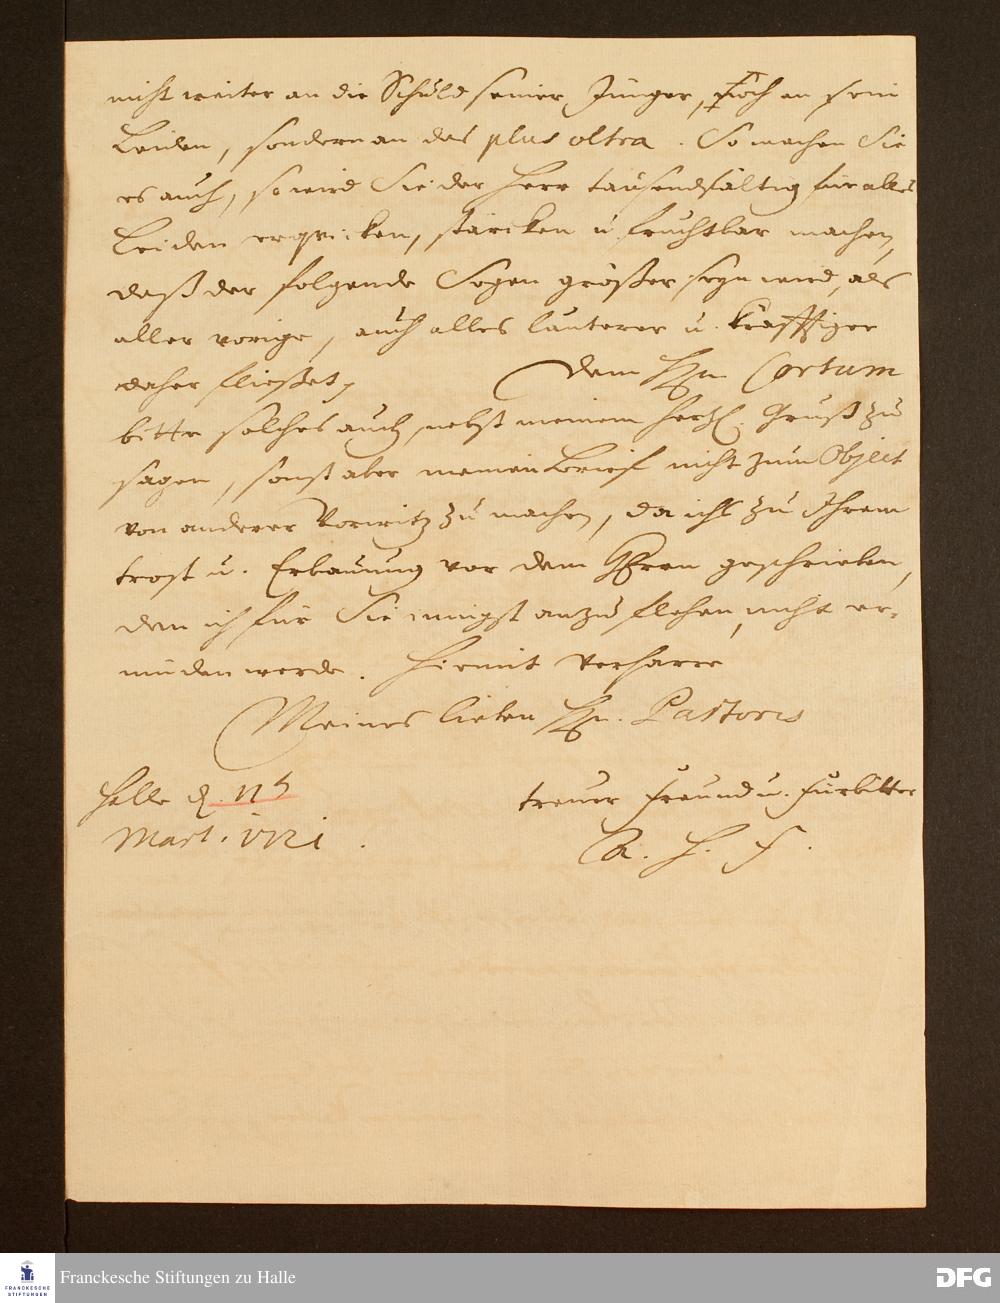 nicht weiter an die Schuld seiner Jünger, noch an sein
Leiden, sondern an das plus oltra. So machen Sie
es auch, so wird Sie der Herr tausendfältig für alles
Leiden erquicken, stärcken u. fruchtbar machen,
daß der folgende Segen größer seyn wird, als
aller vorige, auch alles lauterer u. kräfftiger
daher fließet,
Dem Hn. Cortum
bitte solches auch, nebst meinem hertzl. Gruß zu
sagen, sonst aber meinen Brief nicht zum Object
von anderer Vorwitz zu machen, da ichs zu Ihrem
trost u. Erbauung vor dem HErrn geschrieben,
den ich für Sie innigst anzuflehen, nicht er-
müden werde. Hiemit verharre
Meines lieben Hn. Pastoris
Halle d. 11
treuer Freund u. Fürbitter
Mart. 1721.
C. H. F.
FRANCKESCHE STIFTUNGEN
Franckesche Stiftungen zu Halle
DFG